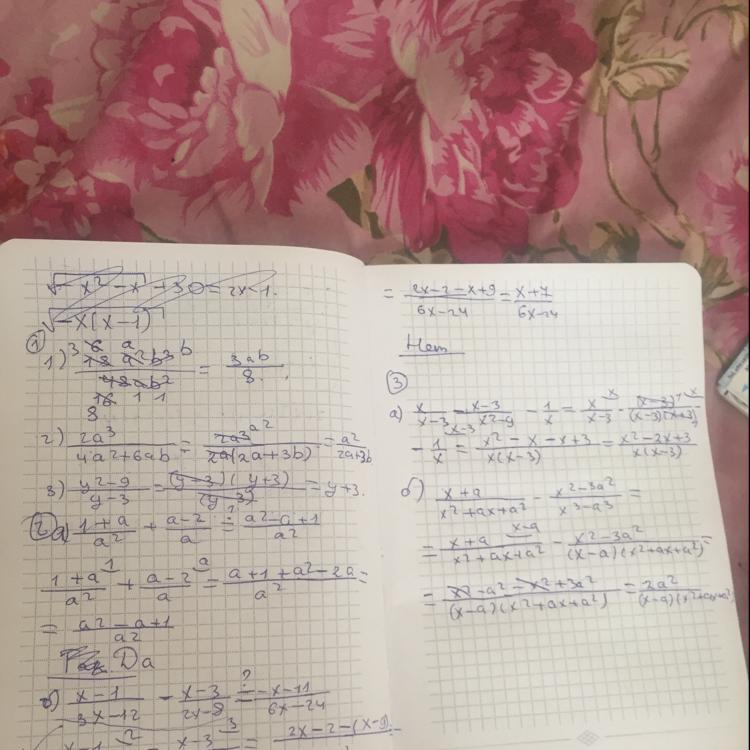 √-x²-x+30=2x-1.
√-x(x-1)
①
1) 18a²b³ / 48ab² = 3ab / 8.
2) 2a³ / 4a²+6ab = 2a³ / 2a(2a+3b) = a² / 2a+3b
3) y²-9 / y-3 = (y-3)(y+3) / (y-3) = y+3.
② а) 1+a / a² + a-2 / a ?= a²-a+1 / a²
1+a / a² + a-2 / a = a+1+a²-2a / a² =
= a²-a+1 / a²
Da
б) x-1 / 3x-12 - x-3 / 2x-8 ?= -x-11 / 6x-24
x-1 - x-3 = 2x-2-(x-9)
= 2x-2-x+9 / 6x-24 = x+7 / 6x-24
Нет
③
а) x / x-3 - x-3 / x²-9 - 1 / x = x / x-3 - (x-3) / (x-3)(x+3)
- 1 / x = x²-x-x+3 / x(x-3) = x²-2x+3 / x(x-3)
б) x+a / x²+ax+a² - x²-3a² / x³-a³ =
= x+a / x²+ax+a² - x²-3a² / (x-a)(x²+ax+a²) =
= x²-a²-x²+3a² / (x-a)(x²+ax+a²) = 2a² / (x-a)(x²+ax+a²)